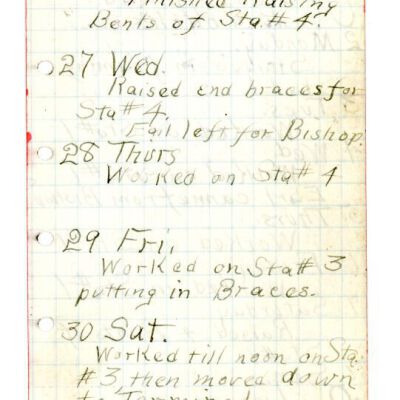 Finished Raising
Bents of Sta# 4.
27 Wed.
Raised end braces for
Sta# 4.
Earl left for Bishop.
28 Thurs
Worked on Sta# 4
29 Fri,
Worked on Sta# 3
putting in Braces.
30 Sat.
Worked till noon on Sta.
# 3, then moved down
to Terminal